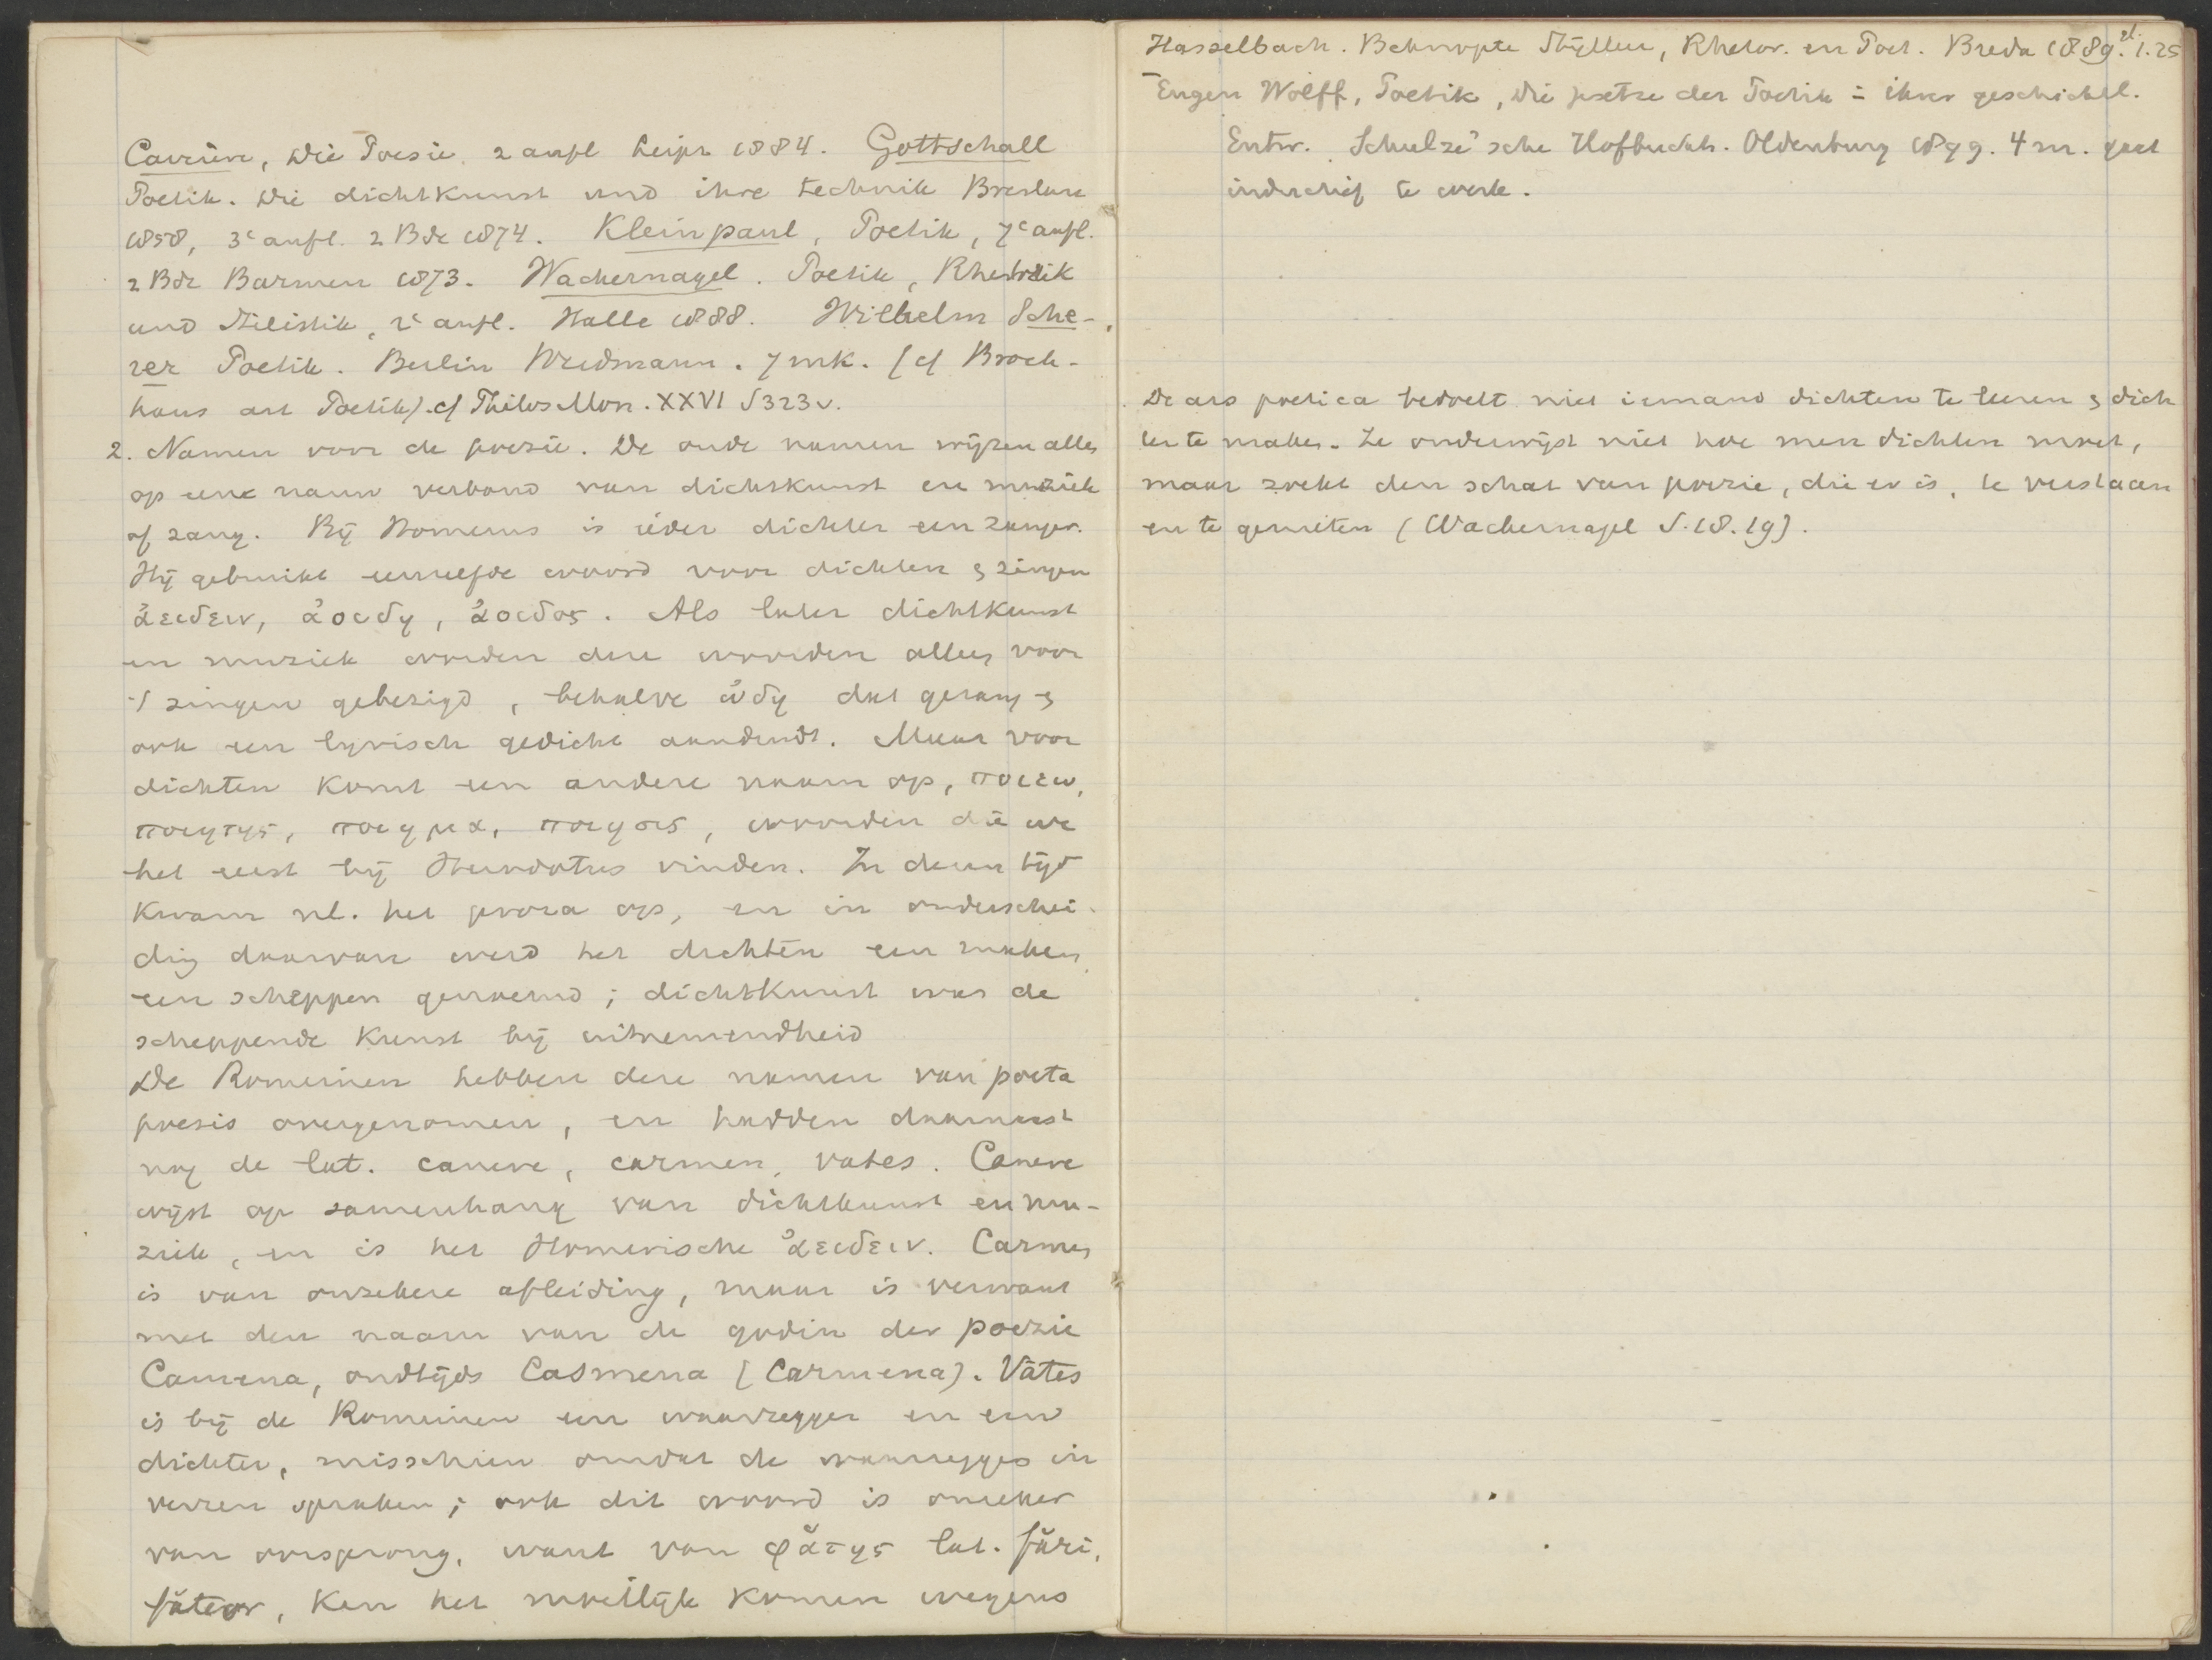 Carrière, die Poesie. 2 aufl Leipz 1884. Gottschall
Poetik. Die dichtkunst und ihre technik Breslau
1858, 3e aufl. 2 Bde 1874. Kleinpaul, Poetik, 7e aufl.
2 Bde Barmen 1873. Wackernagel. Poetik, Rhetorik
und Stilistik, 2e aufl. Halle 1888. Wilhelm Sche-
rer Poetik. Berlin Weidmann. 7 mk. (cf Brock-
haus art Poetik). cf Philos Mon. XXVI S323v.
2. Namen voor de poezie. De oude namen wijzen alle
op eene nauw verband van dichtkunst en muziek
of zang. Bij Homerus is ieder dichter een zanger.
Hij gebruikt eenzelfde woord voor dichten & zingen
ἀειδειν, ἀοιδη, ἀοιδος. Als later dichtkunst
en muziek worden deze woorden alleen voor
't zingen gebezigd, behalve ὠδη dat gezang &
ook een lyrisch gedicht aanduidt. Maar voor
dichten komt een andere naam op, ποιεω,
ποιητης, ποιημα, ποιησις, woorden die we
het eerst bij Herodotus vinden. In dezen tijd
kwam nl. het proza op, en in onderschei-
ding daarvan werd het dichten een maken,
een scheppen genoemd; dichtkunst was de
scheppende kunst bij uitnemendheid
De Romeinen hebben deze namen van poeta
poesis overgenomen, en hadden daarnaast
nog de lat. canere, carmen, vates. Canere
wijst op samenhang van dichtkunst en mu-
ziek, en is het Homerische ἀειδειν. Carmen
is van onzekere afleiding, maar is verwant
met den naam van de godin der poezie
Camena, oudtijds Casmena (Carmena). Vātes
is bij de Romeinen een waarzegger en een
dichter, misschien omdat de waarzeggers in
verzen spraken; ook dit woord is onzeker
van oorsprong, want van φᾰτης lat. fări,
făteor, kan het moeilijk komen wegens
Hasselbach. Beknopte Stijlleer, Rhetor. en Poet. Breda 1889. fl. 1.25
Eugen Wolff, Poetik, die gesetze der Poesie in ihrer geschichtl.
Entw. Schulze'sche Hofbuchh. Oldenburg 1899. 4 m. gaat
inductief te werk.
De ars poetica bedoelt niet iemand dichten te leeren & dich
ter te maken. Ze onderwijst niet hoe men dichten moet,
maar zoekt den schat van poezie, die er is, te verstaan
en te genieten (Wackernagel S. 18. 19).